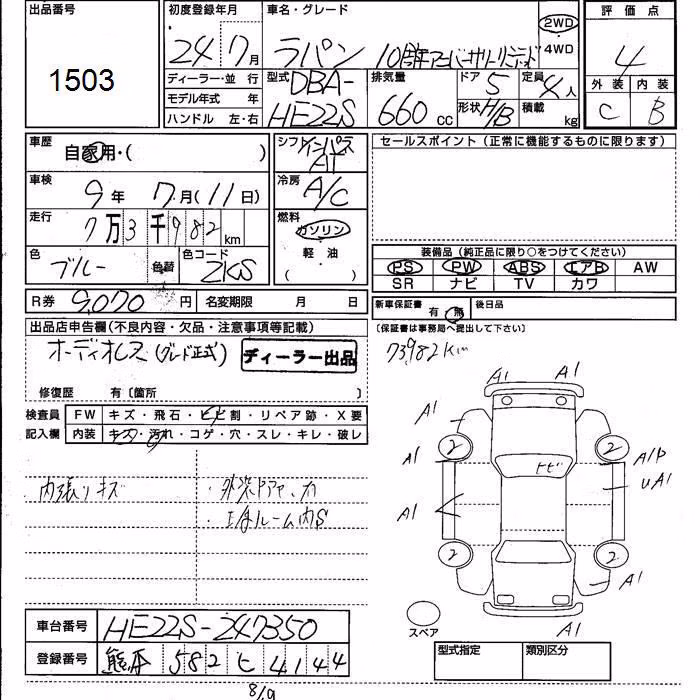 出品番号
1503
初度登録年月
24 7月
車名・グレード
ラパン 10周年アニバーサリーリミテッド
2WD
・
4WD
評価点
4
外装 内装
C B
ディーラー・並 行
モデル年式 年
ハンドル 左・右
型式
DBA-
HE22S
排気量
660 cc
ドア 5
形状 H/B
定員 4人
積載 kg
車歴
自家用・( )
車検
9年 7月(11日)
走行
7万3千982km
色
ブルー
色替
色コード
ZKS
R券 9,070円
名変期限 月 日
シフト
インパネ
AT
冷房
A/C
燃料
ガソリン
・
軽・油
( )
セールスポイント(正常に機能するものに限ります)
装備品(純正品に限り○をつけてください)
PS PW ABS エアB AW
SR ナビ TV カワ
新車保証書 有・無
後日品
〔保証書は事務局へ提出して下さい〕
73982km
出品店申告欄(不良内容・欠品・注意事項等記載)
オーディオレス(グレード正式)
ディーラー出品
修復歴 有〔箇所 〕
検査員
記入欄
FW キズ・飛石・ヒビ割・リペア跡・X要
内装 キズ・汚れ・コゲ・穴・スレ・キレ・破レ
内張リキズ
ルーム内S
A1 A1
A1
2 2
A1
トビ
A1P
UA1
A1
2 2
A1
A1
スペア
車台番号 HE22S-247350
登録番号 熊本 582 ヒ 4144
型式指定 類別区分
8/9